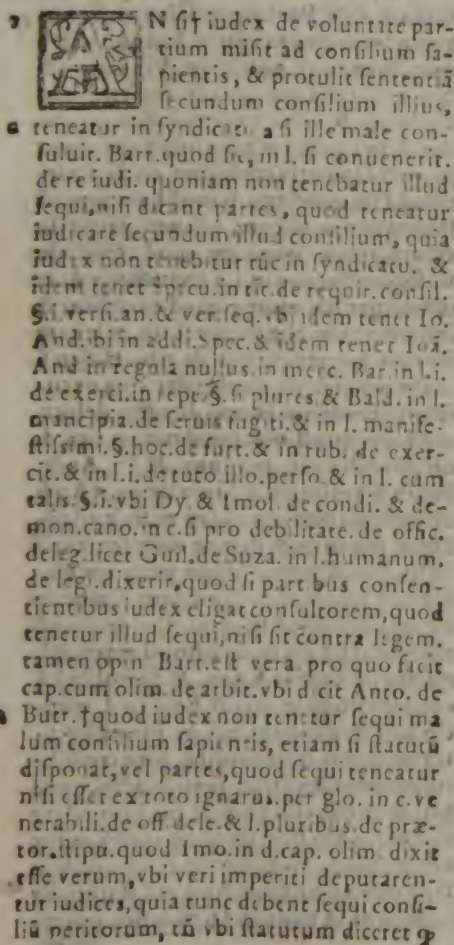 7 AN ſit † iudex de voluntate par-
tium miſit ad conſilium ſa-
pientis, & protulit ſententiā
ſecundum conſilium illius,
a teneatur in ſyndicatu a ſi ille male con-
ſuluit. Bart. quod ſic, in l. ſi conuenerit.
de re iudi. quoniam non tenebatur illud
ſequi, niſi dicant partes, quod teneatur
iudicare ſecundum illud conſilium, quia
iudex non tenebitur tūc in ſyndicatu. &
idem tenet Specu. in tit. de requir. conſil.
§. i. verſi. an. & ver. ſeq. vbi idem tenet Io.
And. ibi in addi. Spec. & idem tenet Ioā.
And in regula nullus. in merc. Bar. in l. i.
de exerci. in repe. §. ſi plures. & Bald. in l.
mancipia. de ſeruis fugiti. & in l. manife-
ſtiſsimi. §. hoc. de furt. & in rub. de exer-
cit. & in l. i. de tuto illo. perſo. & in l. cum
talis. §. i. vbi Dy & Imol. de condi. & de-
mon. cano. in c. ſi pro debilitate. de offic.
deleg. licet Guil. de Suza. in l. humanum.
de legi. dixerit, quod ſi partibus conſen-
tientibus iudex eligat conſultorem, quod
tenetur illud ſequi, niſi ſit contra legem.
tamen opin Bart. eſt vera pro quo facit
cap. cum olim. de arbit. vbi dicit Anto. de
Butr. † quod iudex non tenetur ſequi ma
lum conſilium ſapientis, etiam ſi ſtatutū
diſponat, vel partes, quod ſequi teneatur
niſi eſſet ex toto ignarus. per glo. in c. ve
nerabili. de off dele. & l. pluribus. de præ-
tor. ſtipu. quod Imo. in d. cap. olim. dixit
eſſe verum, vbi veri imperiti deputaren-
tur iudices, quia tunc debent ſequi conſi-
liū peritorum, tñ vbi ſtatutum diceret ꝙ